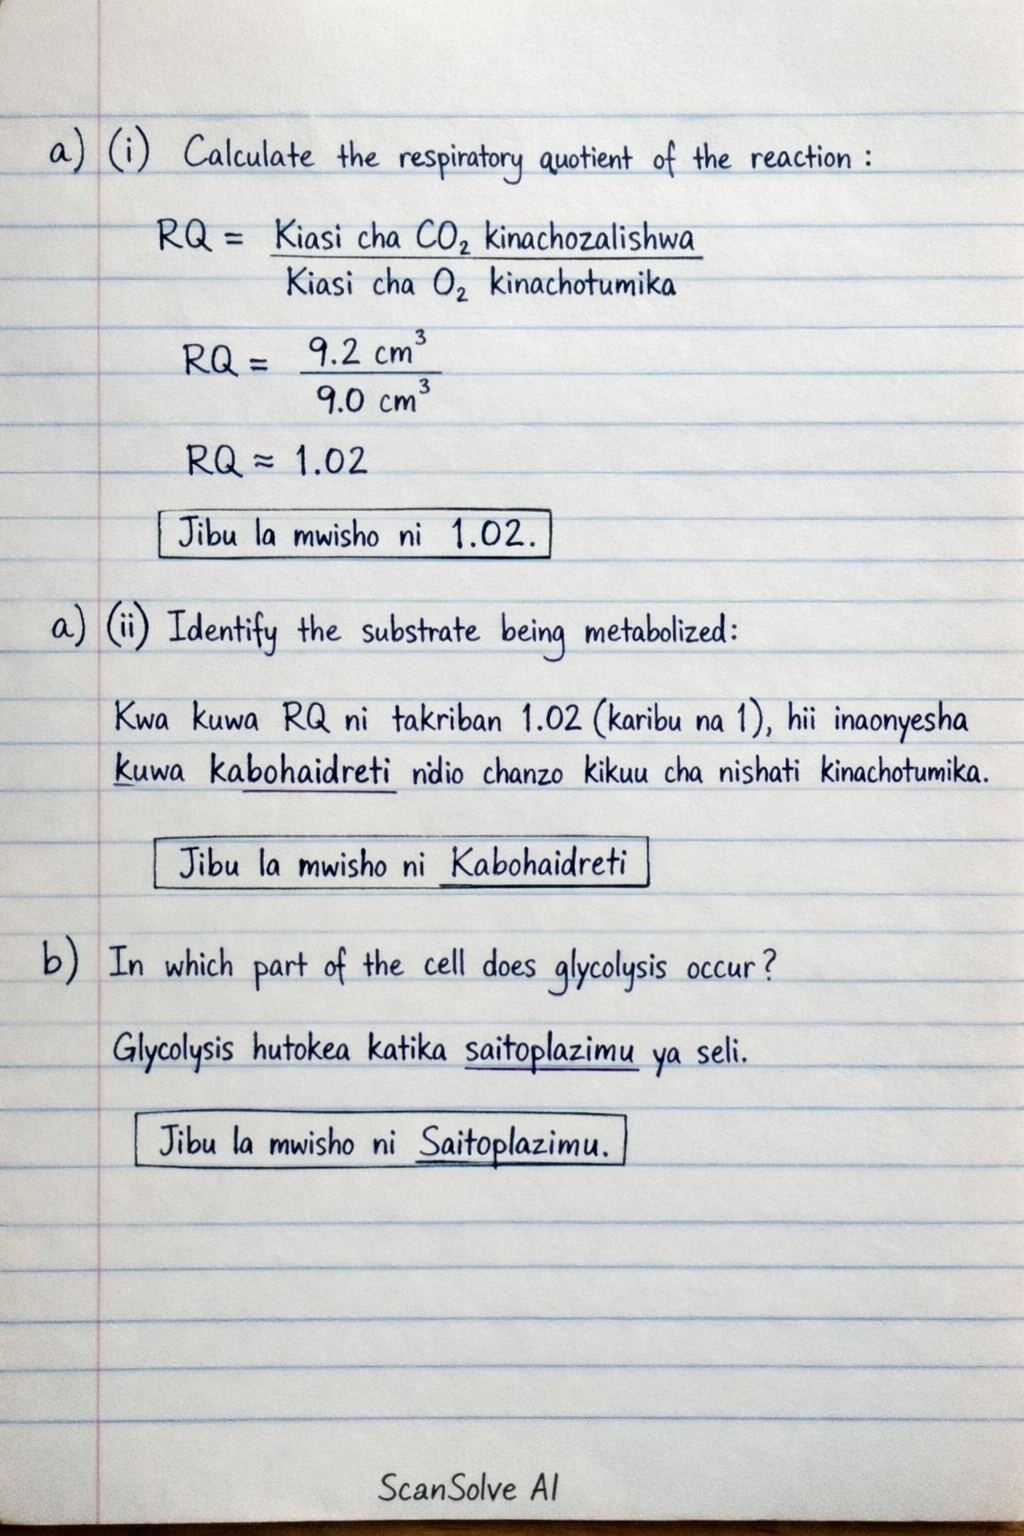 a) (i) Calculate the respiratory quotient of the reaction :
RQ = Kiasi cha CO₂ kinachozalishwa
Kiasi cha O₂ kinachotumika
RQ = 9.2 cm³
9.0 cm³
RQ ≈ 1.02
Jibu la mwisho ni 1.02.
a) (ii) Identify the substrate being metabolized:
Kwa kuwa RQ ni takriban 1.02 (karibu na 1), hii inaonyesha
kuwa kabohaidreti ndio chanzo kikuu cha nishati kinachotumika.
Jibu la mwisho ni Kabohaidreti
b) In which part of the cell does glycolysis occur?
Glycolysis hutokea katika saitoplazimu ya seli.
Jibu la mwisho ni Saitoplazimu.
ScanSolve AI